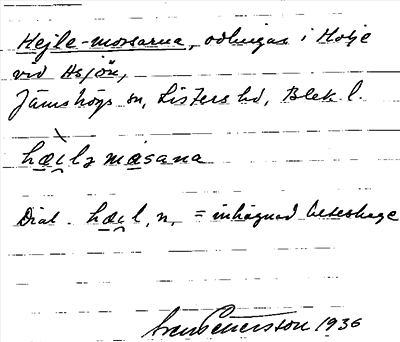 Hejle-mossarna, odlingar i Holje
vid Hsjön,
Jämshögs sn, Listers hd, Blek. l.
hæi̯lə måsana
Dial. hæi̯l, n, = inhägnad beteshage
Sven Benson 1936